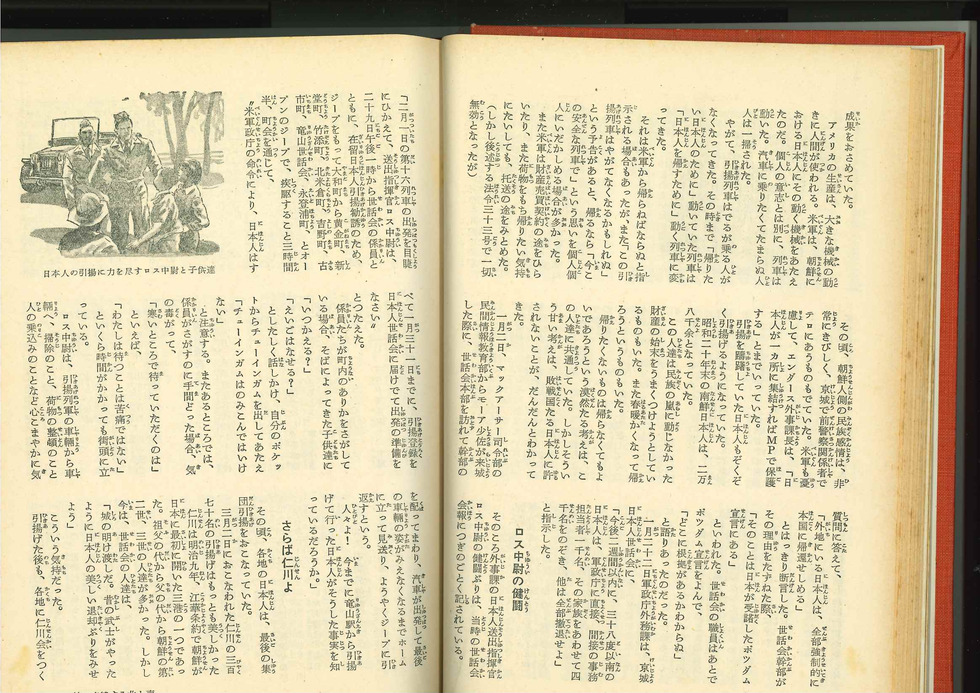 成果をおさめていた。
アメリカの生産は、大きな機械の動
きに人間が使われる。米軍は、朝鮮に
おける日本人にその動く機械をあたえ
たのだ。個人の意志とは別に、列車は
動いた。汽車に乗りたくてたまらぬ人
人は一掃された。
やがて、引揚列車はでるが乗る人が
なくなってきた。その時まで「帰りた
い日本人のために」動いていた列車は
「日本人を帰すために」動く列車に変
ってきた。
それは米軍から帰らねばならぬと指
示される場合もあったが、また「この引
揚列車はやがてなくなるかもしれぬ」
という予告があると、帰るなら「今こ
の安全な列車で」という思いを個人個
人にいだかしめる場合が多かった。
また米軍は財産売買契約の途をひら
いたり、また荷物をもち帰りたい気持
にたいしても、托送の途をみとめた。
(しかし後述する法令三十三号で一切
無効となったが)
その頃、朝鮮人側の民族感情は、非
常にきびしく、京城で前警察関係者で
テロにあうものもでていた。米軍も憂
慮して、エンダース外事課長は、「日
本人が一カ所に集結すればMPで保護
する」とまでいっていた。
引揚を躊躇していた日本人もぞくぞ
く引揚げるようになっていた。
昭和二十年末の南鮮日本人は、二万
八千余となっていた。
この人達は民族の嵐に動じなかった
財産の始末をうまくつけようとしてい
るものもいた。また春暖かくなって帰
ろうというものもいた。
帰りたくないものは帰らなくてもよ
いであろうという漠然たる考えは、こ
の人達に共通していた。しかしそうい
う甘い考えは、敗戦国たる日本人に許
されないことが、だんだんとわかって
きた。
一月二日、マックアーサー司令部の
民間情報教育部からモーア少佐が来城
した際に、世話会本部を訪れて幹部の
質問に答えて、
「外地にいる日本人は、全部強制的に
本国に帰還せしめる」
とはっきり断言した。世話会幹部が
その理由をたずねた際、
「そのことは日本が受諾したポツダム
宣言にある」
といわれた。世話会の職員はあとで
ポツダム宣言をよんで、
「どこに根拠があるかわからぬ」
と語りあったのだった。
一月二十二日軍政庁外務課は、京城
日本人世話会に、
「今後二週間以内に、三十八度以南の
日本人は、軍政庁に直接、間接の事務
担当者一千名、その家族をあわせて四
千名をのぞき、他は全部撤退せよ」
と指示した。
ロス中尉の健闘
そのころ外事課の日本人送出指揮官
ロス中尉の健闘ぶりは、当時の世話会
会報につぎのごとく記されている。
「二月一日の第十六列車の出発を目睫
にひかえて、送出指揮官ロス中尉は、
二十九日午後一時から世話会の係員と
ともに、在留日本人引揚勧誘のため、
ジープをもって大和町から黄金町、新
堂町、竹添町、北米倉町、吉野町、古
市町、竜山世話会、永登浦町、とオー
プンのジープで、疾駆すること三時間
半、町会を通じて、
〝米軍政庁の命令により、日本人はす
日本人の引揚に力を尽すロス中尉と子供達
べて一月三十一日までに、引揚登録を
日本人世話会に届けでて出発の準備を
なさい〟
とつたえた。
係員たちが町内のありかをさがして
いる場合、そこによってきた子供達に
「いつかえる?」
「えいごはなせる?」
としたしく話しかけ、自分のポケッ
トからチューインガムを出してあたえ
「チューインガムはのみこんではいけ
ない」
と注意する。またあるところでは、
係員がさがすのに手間どった場合、気
の毒がって、
「寒いところで待っていただくのは」
といえば、
「わたしは待つことは苦痛ではない」
といくら時間がかかっても街頭に立
っている。
ロス中尉は、引揚列車の車輛から車
輛へ、掃除のこと、荷物の整頓のこと
人の乗込みのことなど心こまやかに気
を配ってまわり、汽車が出発して最後
の車輛の姿がみえなくなるまでホーム
に立って見送り、ようやくジープに引
返すという。
人々よ! 今までに竜山駅から引揚
げて行った日本人がそうした事実を知
っているだろうか。」
さらば仁川よ
その頃、各地の日本人は、最後の集
団引揚をおこなっていた。
三月二日におこなわれた仁川の三百
七十名の引揚げはもっとも美しかった
仁川は明治九年、江華条約で朝鮮が
日本に最初に開いた三港の一つであっ
た。祖父の代から父の代から朝鮮の第
二世、三世の人達が多かった。しかし
今は、世話会の人達は、
「城の明け渡しだ。昔の武士がやった
ように日本人の美しい退却ぶりをみせ
よう」
こういう気持だった。
引揚げた後も、各地に仁川会をつく